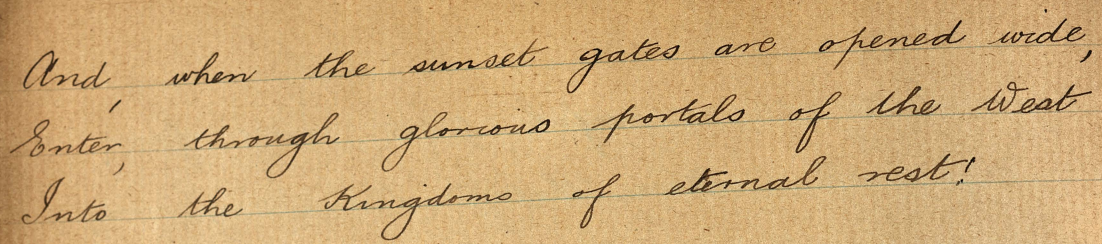 And, when the sunset gates are opened wide,
Enter, through glorious portals of the West
Into the Kingdoms of eternal rest!